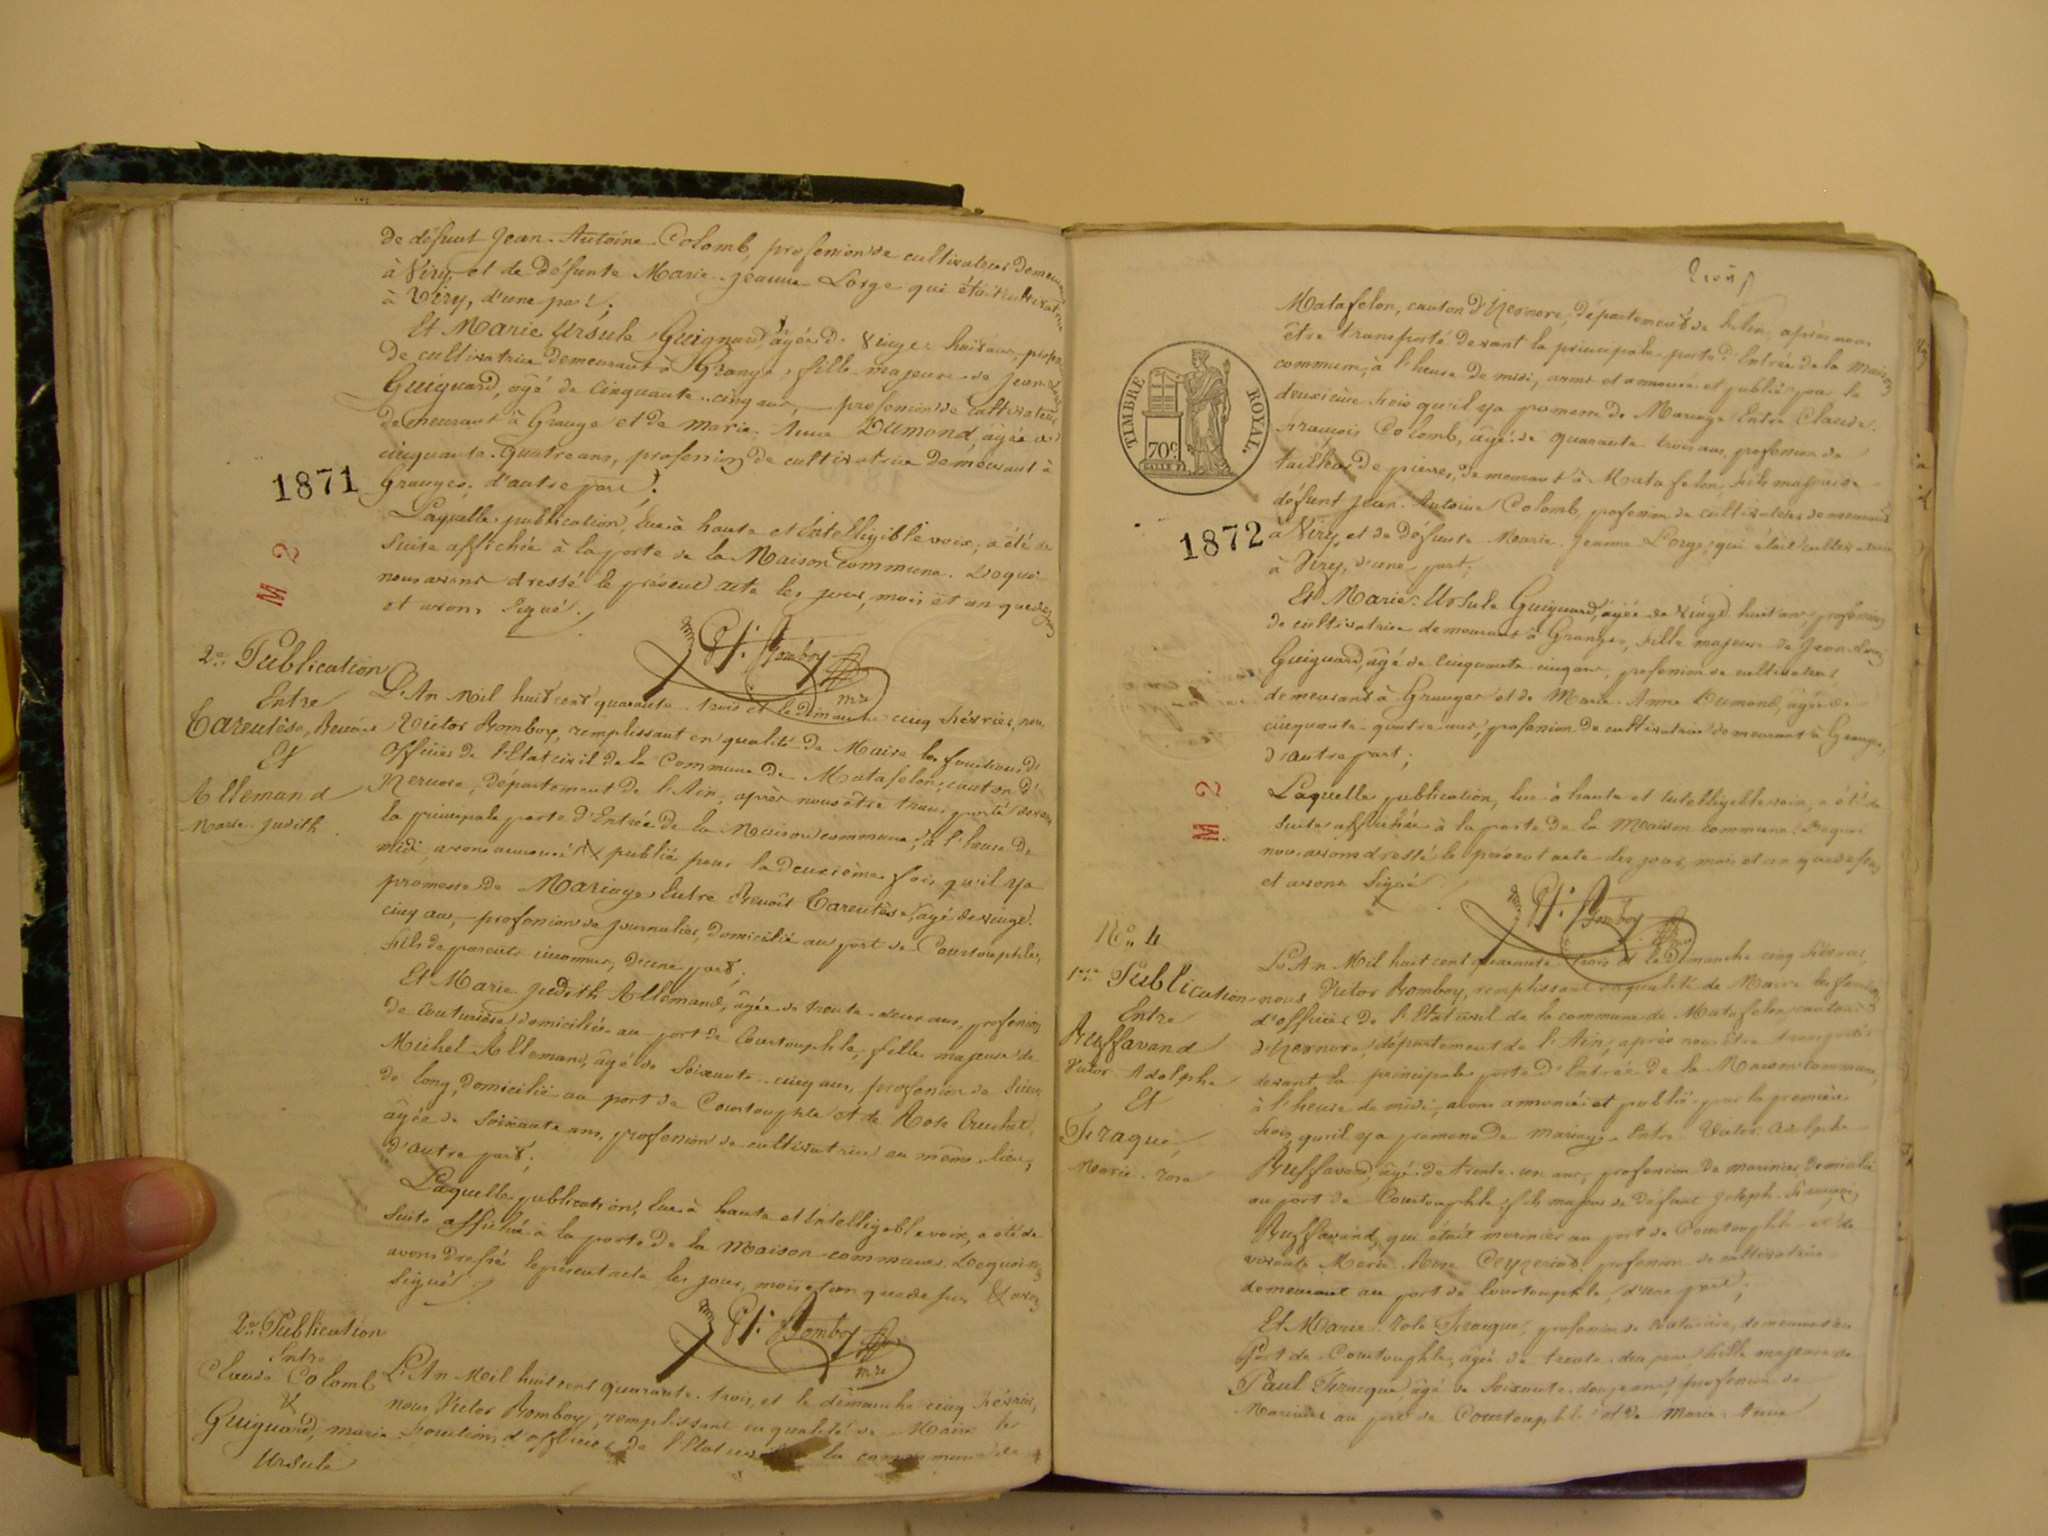 de défunt Jean-Antoine Colomb, profession de cultivateur demeurant
à Viry, et de défunte Marie-Jeanne Lorge qui était cultivatrice
à Viry, d'une part;
Et Marie Ursule Guignard, âgée de vingt huit ans, profession
de cultivatrice, demeurant à Grange, fille majeure de Jean
Guignard, âgé de cinquante-cinq ans, profession de cultivateur
demeurant à Grange et de Marie-Anne Dumond, âgée de
cinquante-quatre ans, profession de cultivatrice demeurant à
Granges, d'autre part;
1871
Laquelle publication, lue à haute et intelligible voix, a été de
suite affichée à la porte de la Maison commune. De quoi
nous avons dressé le présent acte les jour, mois et an que dessus
et avons signé.
M 2
Vr. Bomboy
mre
2e. Publication
Entre
Carentèse, Benoît
Et
Allemand
Marie-Judith
L'An Mil huit cent quarante-trois et le dimanche cinq février, nous
Victor Bomboy, remplissant en qualité de Maire les fonctions d'
officier de l'Etat civil de la Commune de Matafelon, canton d'
Nernore, département de l'Ain, après nous être transporté devant
la principale porte d'Entrée de la Maison commune, à l'heure de
midi, avons annoncé et publié pour la deuxième fois qu'il y a
promesse de Mariage Entre Benoît Carentèse, âgé de vingt
cinq ans, profession de journalier, domicilié au port de Courtouphle,
fils de parents inconnus, d'une part;
Et Marie Judith Allemand, âgée de trente-deux ans, profession
de Couturière, domiciliée au port de Courtouphle, fille majeure de
Michel Allemand, âgé de soixante-cinq ans, profession de scieur
de long, domicilié au port de Courtouphle et de Rose
âgée de soixante ans, profession de cultivatrice au même lieu,
d'autre part;
Laquelle publication, lue à haute et intelligible voix, a été de
suite affichée à la porte de la Maison commune. De quoi nous
avons dressé le présent acte les jour, mois et an que dessus & avons
signé.
Vr. Bomboy
mre
2e. Publication
Entre
Claude Colomb
&
Guignard, Marie
Ursule
L'An Mil huit cent quarante-trois, et le dimanche cinq février,
nous Victor Bomboy, remplissant en qualité de Maire les
fonctions d'officier de l'Etat civil de la commune de
Trois
Matafelon, canton d'Nernore, département de l'Ain, après nous
être transporté devant la principale porte d'Entrée de la Maison
commune, à l'heure de midi, avons annoncé et publié pour la
deuxième fois qu'il y a promesse de Mariage Entre Claude
François Colomb, âgé de quarante trois ans, profession de
tailleur de pierres, demeurant à Matafelon, fils majeur de
défunt Jean-Antoine Colomb, profession de cultivateur demeurant
à Viry, et de défunte Marie-Jeanne Lorge, qui était cultivatrice
à Viry, d'une part;
TIMBRE ROYAL.
70c
1872
Et Marie-Ursule Guignard, âgée de vingt huit ans, profession
de cultivatrice demeurant à Granges, fille majeure de Jean
Guignard, âgé de cinquante-cinq ans, profession de cultivateur
demeurant à Granges et de Marie-Anne Dumond, âgée de
cinquante-quatre ans, profession de cultivatrice demeurant à Grange,
d'autre part;
M 2
Laquelle publication, lue à haute et intelligible voix, a été de
suite affichée à la porte de la Maison commune. De quoi
nous avons dressé le présent acte les jour, mois et an que dessus
et avons signé
Vr. Bomboy
No. 4
1ere Publication
Entre
Buffavand
Victor-Adolphe
Et
Fraque,
Marie-Rose
L'An Mil huit cent quarante-trois et le Dimanche cinq février,
nous Victor Bomboy, remplissant en qualité de Maire les fonctions
d'officier de l'Etat civil de la commune de Matafelon canton
d'Nernore, département de l'Ain, après nous être transporté
devant la principale porte d'Entrée de la Maison commune,
à l'heure de midi, avons annoncé et publié pour la première
fois qu'il y a promesse de mariage Entre Victor Adolphe
Buffavand, âgé de trente-un ans, profession de marinier domicilié
au port de Courtouphle, fils majeur de défunt Joseph-François
Buffavand, qui était marinier au port de Courtouphle et de
vivante Marie-Rose Ceyzeriat, profession de cultivatrice
demeurant au port de Courtouphle, d'une part;
Et Marie-Rose Fraque, profession de couturière, demeurant au
Port de Courtouphle, âgée de trente-deux ans, fille majeure de
Paul Fraque, âgé de soixante-douze ans, profession de
Marinier au port de Courtouphle et de Marie-Anne